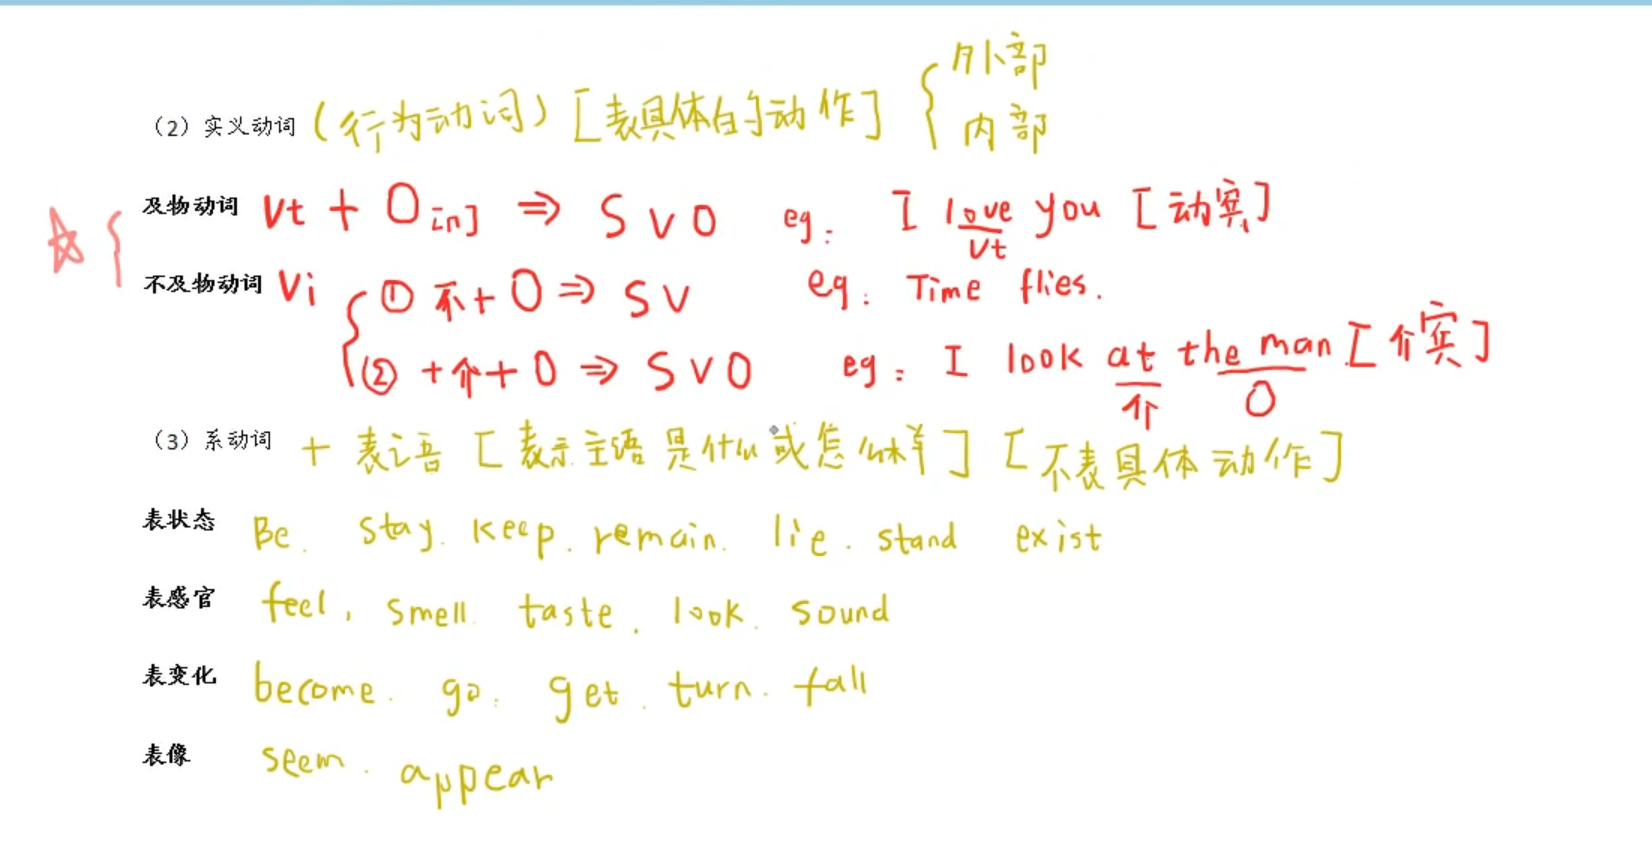 外部
(2) 实义动词 (行为动词) [表具体的动作] {
内部
及物动词 Vt + O [n] ⇒ S V O eg: I love you [动宾]
Vt
不及物动词 Vi { ① 不+O ⇒ S V eg: Time flies.
② +介+O ⇒ S V O eg: I look at the man [介宾]
介 O
(3) 系动词 + 表语 [表示主语是什么或怎么样] [不表具体动作]
表状态 Be. stay. keep. remain. lie. stand exist
表感官 feel, smell. taste. look. sound
表变化 become. go. get. turn. fall
表像 seem. appear